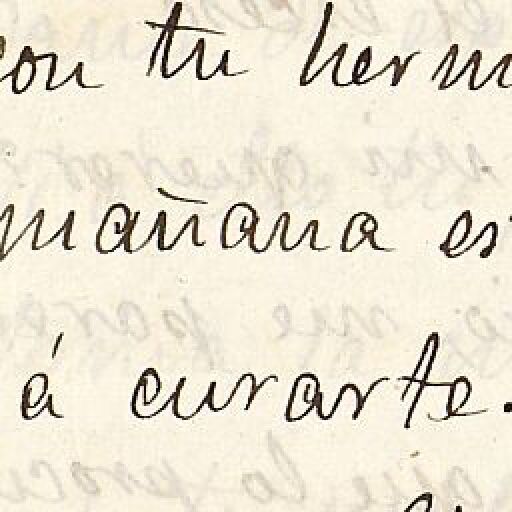 con tu herm
mañana es
á curarte.